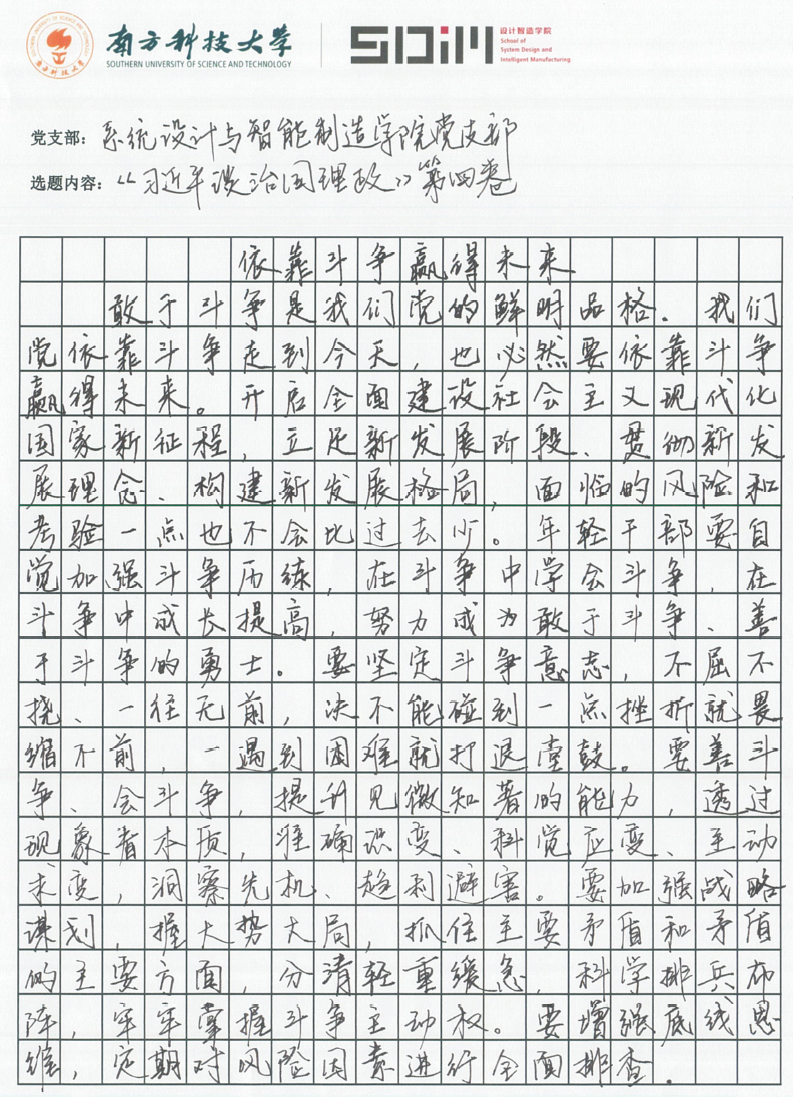 南方科技大学
SOUTHERN UNIVERSITY OF SCIENCE AND TECHNOLOGY
SDIM
设计智造学院
School of
System Design and
Intelligent Manufacturing
党支部：系统设计与智能制造学院党支部
选题内容：《习近平谈治国理政》第四卷
依靠斗争赢得未来
敢于斗争是我们党的鲜明品格．我们
党依靠斗争走到今天，也必然要依靠斗争
赢得未来。开启全面建设社会主义现代化
国家新征程，立足新发展阶段、贯彻新发
展理念、构建新发展格局，面临的风险和
考验一点也不会比过去少。年轻干部要自
觉加强斗争历练，在斗争中学会斗争，在
斗争中成长提高，努力成为敢于斗争、善
于斗争的勇士。要坚定斗争意志，不屈不
挠、一往无前，决不能碰到一点挫折就畏
缩不前，一遇到困难就打退堂鼓。要善斗
争、会斗争，提升见微知著的能力，透过
现象看本质，准确识变、科觉应变、主动
求变，洞察先机、趋利避害。要加强战略
谋划，握大势大局，抓住主要矛盾和矛盾
的主要方面，分清轻重缓急，科学排兵布
阵，牢牢掌握斗争主动权。要增强底线思
维，定期对风险因素进行全面排查．